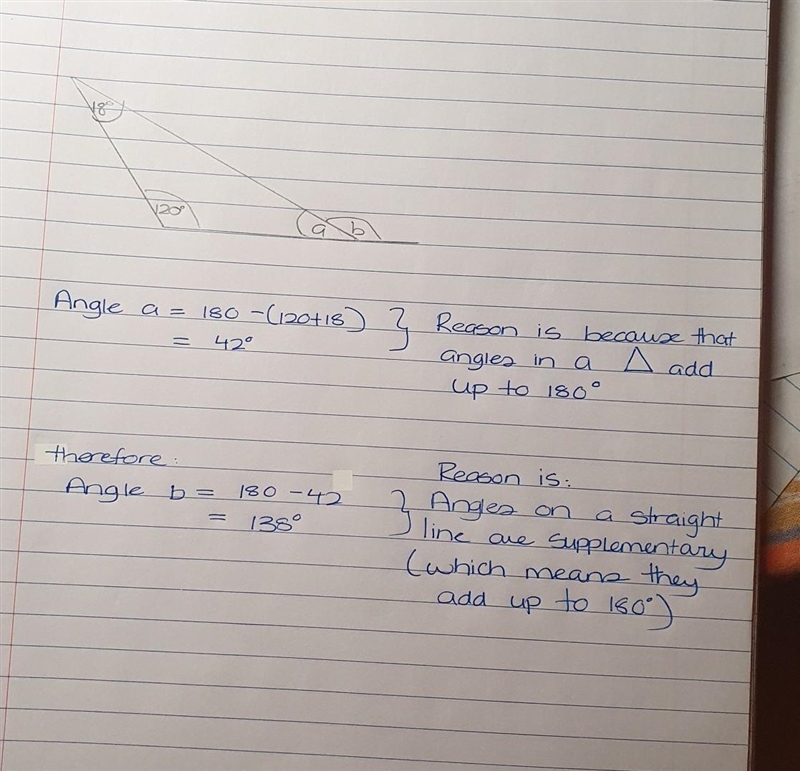 18°
120°
a b
Angle a = 180 - (120+18) } Reason is because that
= 42° angles in a △ add
up to 180°
therefore: Reason is:
Angle b = 180 - 42 } Angles on a straight
= 138° line are supplementary
(which means they
add up to 180°)